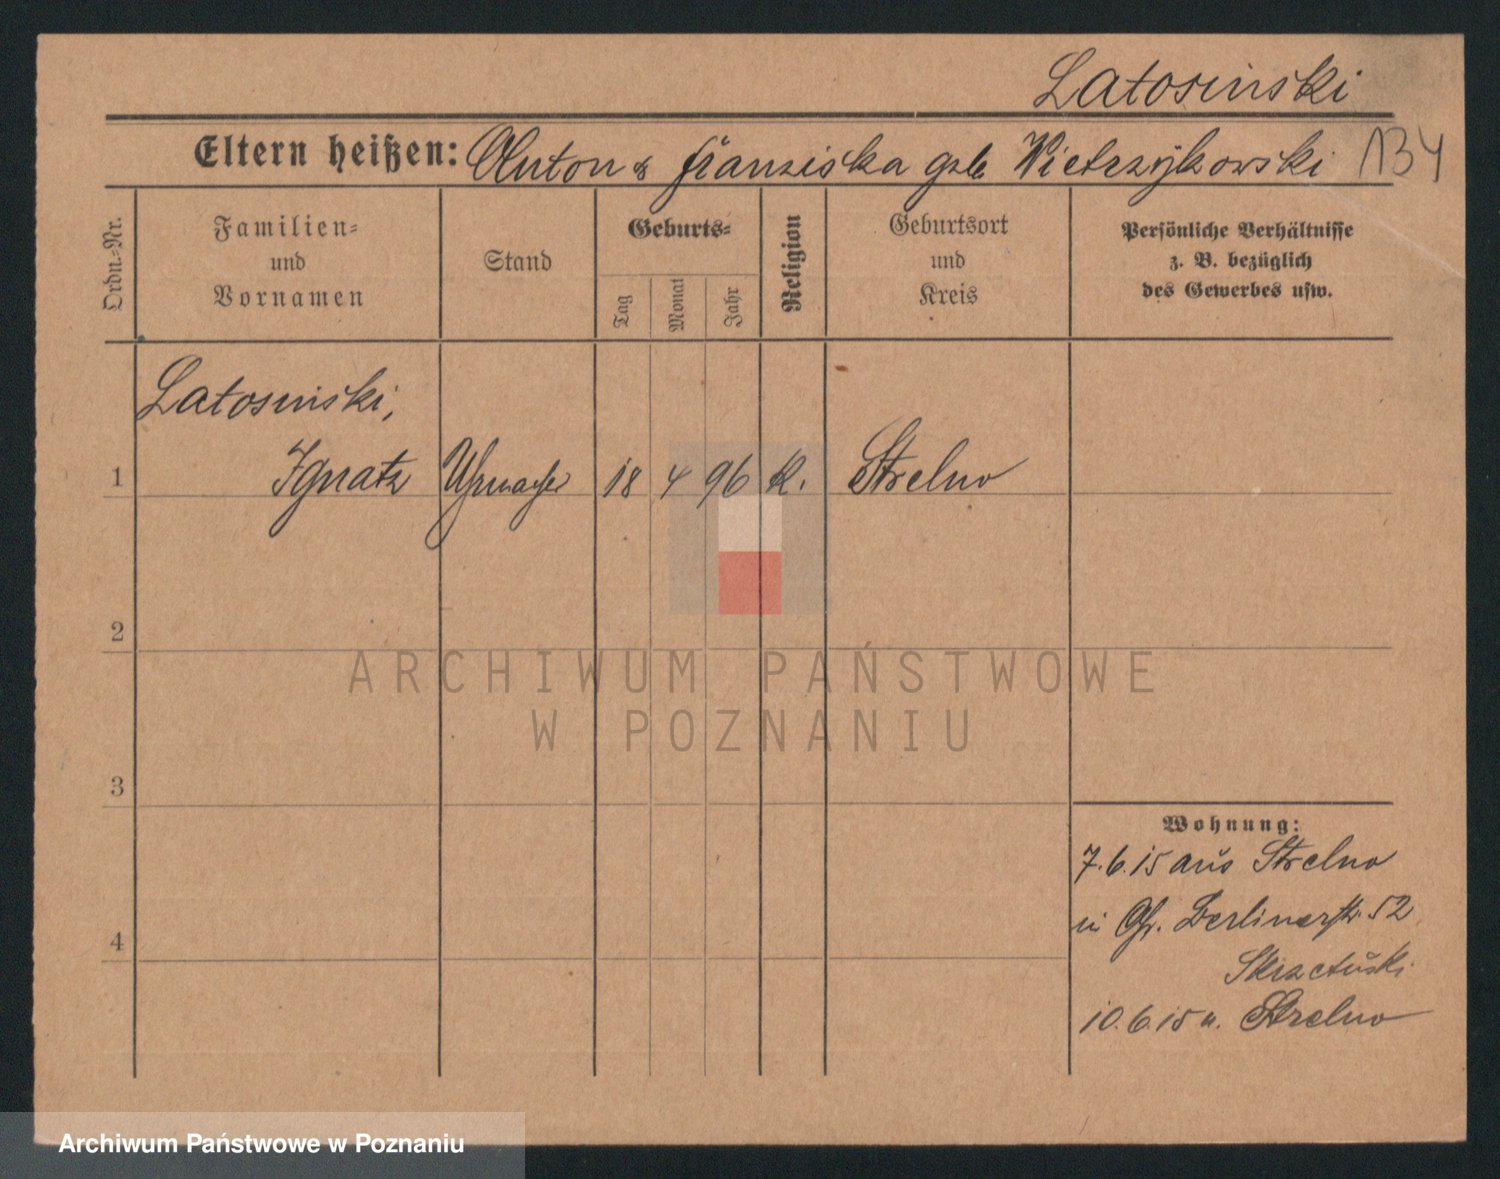 Latosinski
134
Eltern heißen: Anton & Franziska geb Wietrzykowski
Ordn.-Nr.
Familien-
und
Vornamen
Stand
Geburts-
Tag
Monat
Jahr
Religion
Geburtsort
und
Kreis
Persönliche Verhältnisse
z. B. bezüglich
des Gewerbes usw.
Latosinski,
1 Ignatz Uhrmacher 18 4 96 K. Strelno
2
3
4
Wohnung:
7.6.15 aus Strelno
in Gr. Berlinerstr. 52
Skrzetuski
10.6.15 n. Strelno
ARCHIWUM PAŃSTWOWE
W POZNANIU
Archiwum Państwowe w Poznaniu